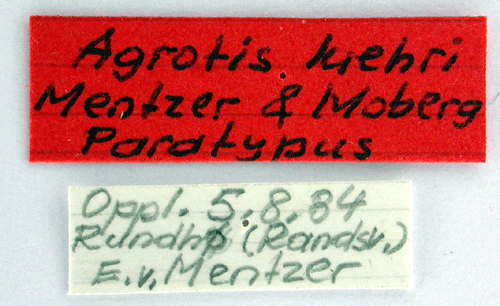 Agrotis kyehri
Mentzer & Moberg
Paratypus
Oppl. 5.8.84
Rundhø (Randsv.)
E.v. Mentzer